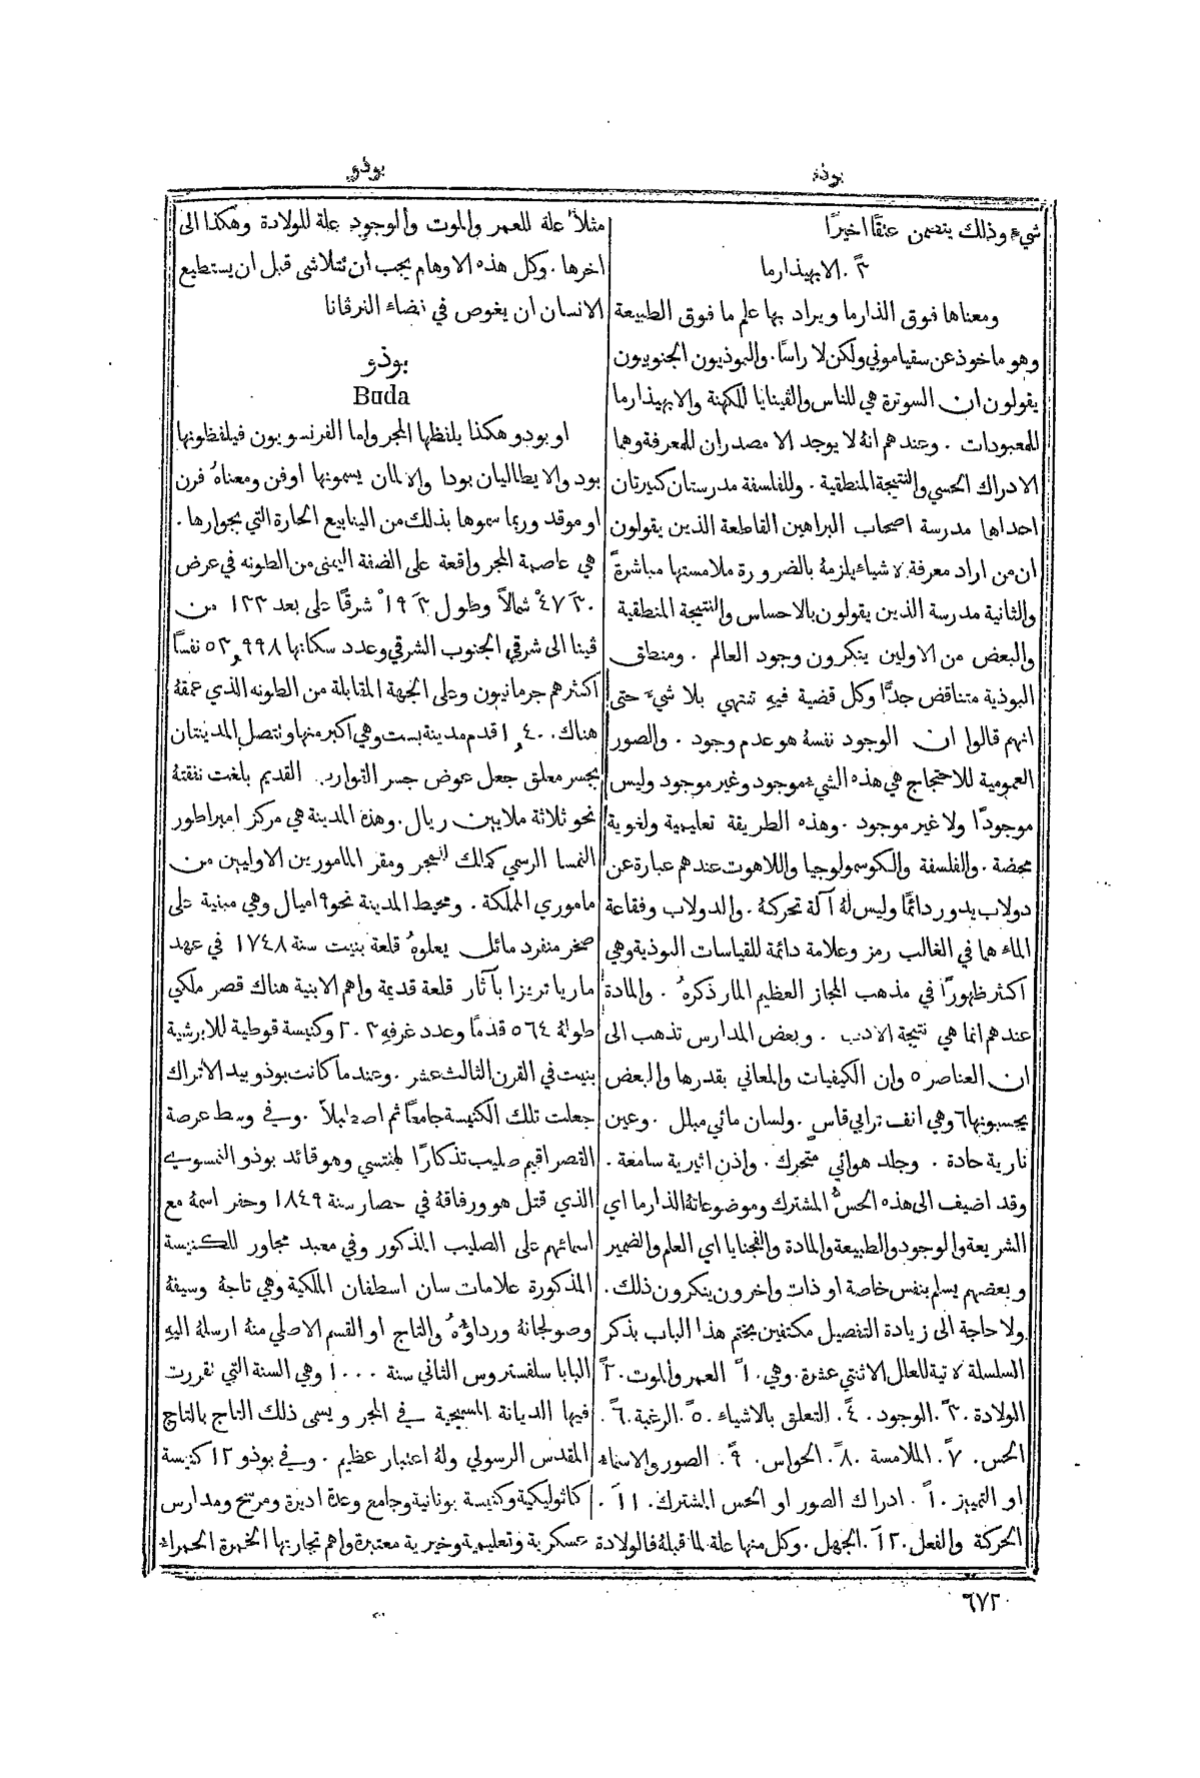 بوذه
بوذو
شيء وذلك يتضمن عنقًا اخيرًا
٣ً. الابهيذارما
ومعناها فوق الذارما ويراد بها علم ما فوق الطبيعة
وهو ماخوذ عن سقياموني ولكن لا راسًا. والبوذيون الجنوبيون
يقولون ان السوترة هي للناس والڤينايا للكهنة والابهيذارما
للمعبودات. وعندهم انهُ لا يوجد الا مصدران للمعرفة وهما
الادراك الحسي والنتيجة المنطقية. وللفلسفة مدرستان كبيرتان
احداها مدرسة اصحاب البراهين القاطعة الذين يقولون
ان من اراد معرفة لاشياء يلزمهُ بالضرورة ملامستها مباشرةً
والثانية مدرسة الذين يقولون بالاحساس والنتيجة المنطقية
والبعض من الاولين ينكرون وجود العالم. ومنطق
البوذية متناقض جدًّا وكل قضية فيهِ تنتهي بلا شيء حتى
انهم قالوا ان الوجود نفسهُ هو عدم وجود. والصور
العمومية للاحتجاج هي هذه الشيء موجود وغير موجود وليس
موجودًا ولا غير موجود. وهذه الطريقة تعليمية ولغوية
محضة. والفلسفة والكوسمولوجيا واللاهوت عندهم عبارة عن
دولاب يدور دائمًا وليس لهُ آلة تحركهُ. والدولاب وفقاعة
الماء هما في الغالب رمز وعلامة دائمة للقياسات البوذية وهي
اكثر ظهورًا في مذهب المجاز العظيم المار ذكرهُ. والمادة
عندهم انما هي نتيجة الادب. وبعض المدارس تذهب الى
ان العناصر ٥ وان الكيفيات والمعاني بقدرها والبعض
يحسبونها ٦ وهي انف ترابي قاس. ولسان مائي مبلل. وعين
نارية حادة. وجلد هوائي متحرك. واذن اثيرية سامعة.
وقد اضيف الى هذه الحسُّ المشترك وموضوعاتهُ الذارما اي
الشريعة والوجود والطبيعة والمادة والفجنايا اي العلم والضمير
وبعضهم يسلم بنفس خاصة او ذات واخرون ينكرون ذلك.
ولا حاجة الى زيادة التفصيل مكتفين بختم هذا الباب بذكر
السلسلة لاتية للعلل الاثنتي عشرة. وهي. ١ً العمر والموت. ٢ً
الولادة. ٣ً. الوجود. ٤ً. التعلق بالاشياء. ٥ً. الرغبة. ٦ً.
الحس. ٧ً. الملامسة. ٨ً. الحواس. ٩ً. الصور والاسماء
او التمييز. ١٠ً. ادراك الصور او الحس المشترك. ١١ً.
الحركة والفعل. ١٢ً. الجهل. وكل منها علة لما قبلهُ فالولادة
مثلاً علة للعمر والموت والوجود علة للولادة وهكذا الى
اخرها. وكل هذه الاوهام يجب ان تتلاشى قبل ان يستطيع
الانسان ان يغوص في فضاء النرڤانا
بوذو
Buda
او بودو هكذا يلفظها المجر واما الفرنسويون فيلفظونها
بود والايطاليان بودا والالمان يسمونها اوفن ومعناهُ فرن
او موقد وربما سموها بذلك من الينابيع الحارة التي بجوارها.
هي عاصمة المجر واقعة على الضفة اليمنى من الطونه في عرض
٣٠َ ٤٧ْ شمالاً وطول ٣َ ١٩ْ شرقًا على بعد ١٣٣ من
ڤينا الى شرقي الجنوب الشرقي وعدد سكانها ٥٣,٩٩٨ نفسًا
اكثرهم جرمانيون وعلى الجهة المقابلة من الطونه الذي عمقهُ
هناك ١,٤٠٠ قدم مدينة بست وهي اكبر منها وتتصل المدينتان
بجسر معلق جعل عوض جسر القوارب القديم بلغت نفقتهُ
نحو ثلاثة ملايين ريال. وهذه المدينة هي مركز امبراطور
النمسا الرسمي كملك للمجر ومقر المامورين الاوليين من
ماموري المملكة. ومحيط المدينة نحو ٩ اميال وهي مبنية على
صخر منفرد مائل يعلوهُ قلعة بنيت سنة ١٧٤٨ في عهد
ماريا تريزا بآثار قلعة قديمة واهم الابنية هناك قصر ملكي
طولهُ ٥٦٤ قدمًا وعدد غرفهِ ٢٠٣ وكنيسة قوطية للابرشية
بنيت في القرن الثالث عشر. وعندما كانت بوذو بيد الاتراك
جعلت تلك الكنيسة جامعًا ثم اصطبلاً. وفي وسط عرصة
القصر اقيم صليب تذكارًا لهنتسي وهو قائد بوذو النمسوي
الذي قتل هو ورفاقهُ في حصار سنة ١٨٤٩ وحفر اسمهُ مع
اسمائهم على الصليب المذكور وفي معبد مجاور للكنيسة
المذكورة علامات سان اسطفان الملكية وهي تاجهُ وسيفهُ
وصولجانهُ ورداؤهُ والتاج او القسم الاصلي منهُ ارسلهُ اليهِ
البابا سلفستروس الثاني سنة ١٠٠٠ وهي السنة التي تقررت
فيها الديانة المسيحية في المجر ويسمى ذلك التاج بالتاج
المقدس الرسولي ولهُ اعتبار عظيم. وفي بوذو ١٢ كنيسة
كاثوليكية وكنيسة يونانية وجامع وعدة اديرة ومرسح ومدارس
عسكرية وتعليمية وخيرية معتبرة واهم تجارتها الخمرة الحمراء
٦٧٢